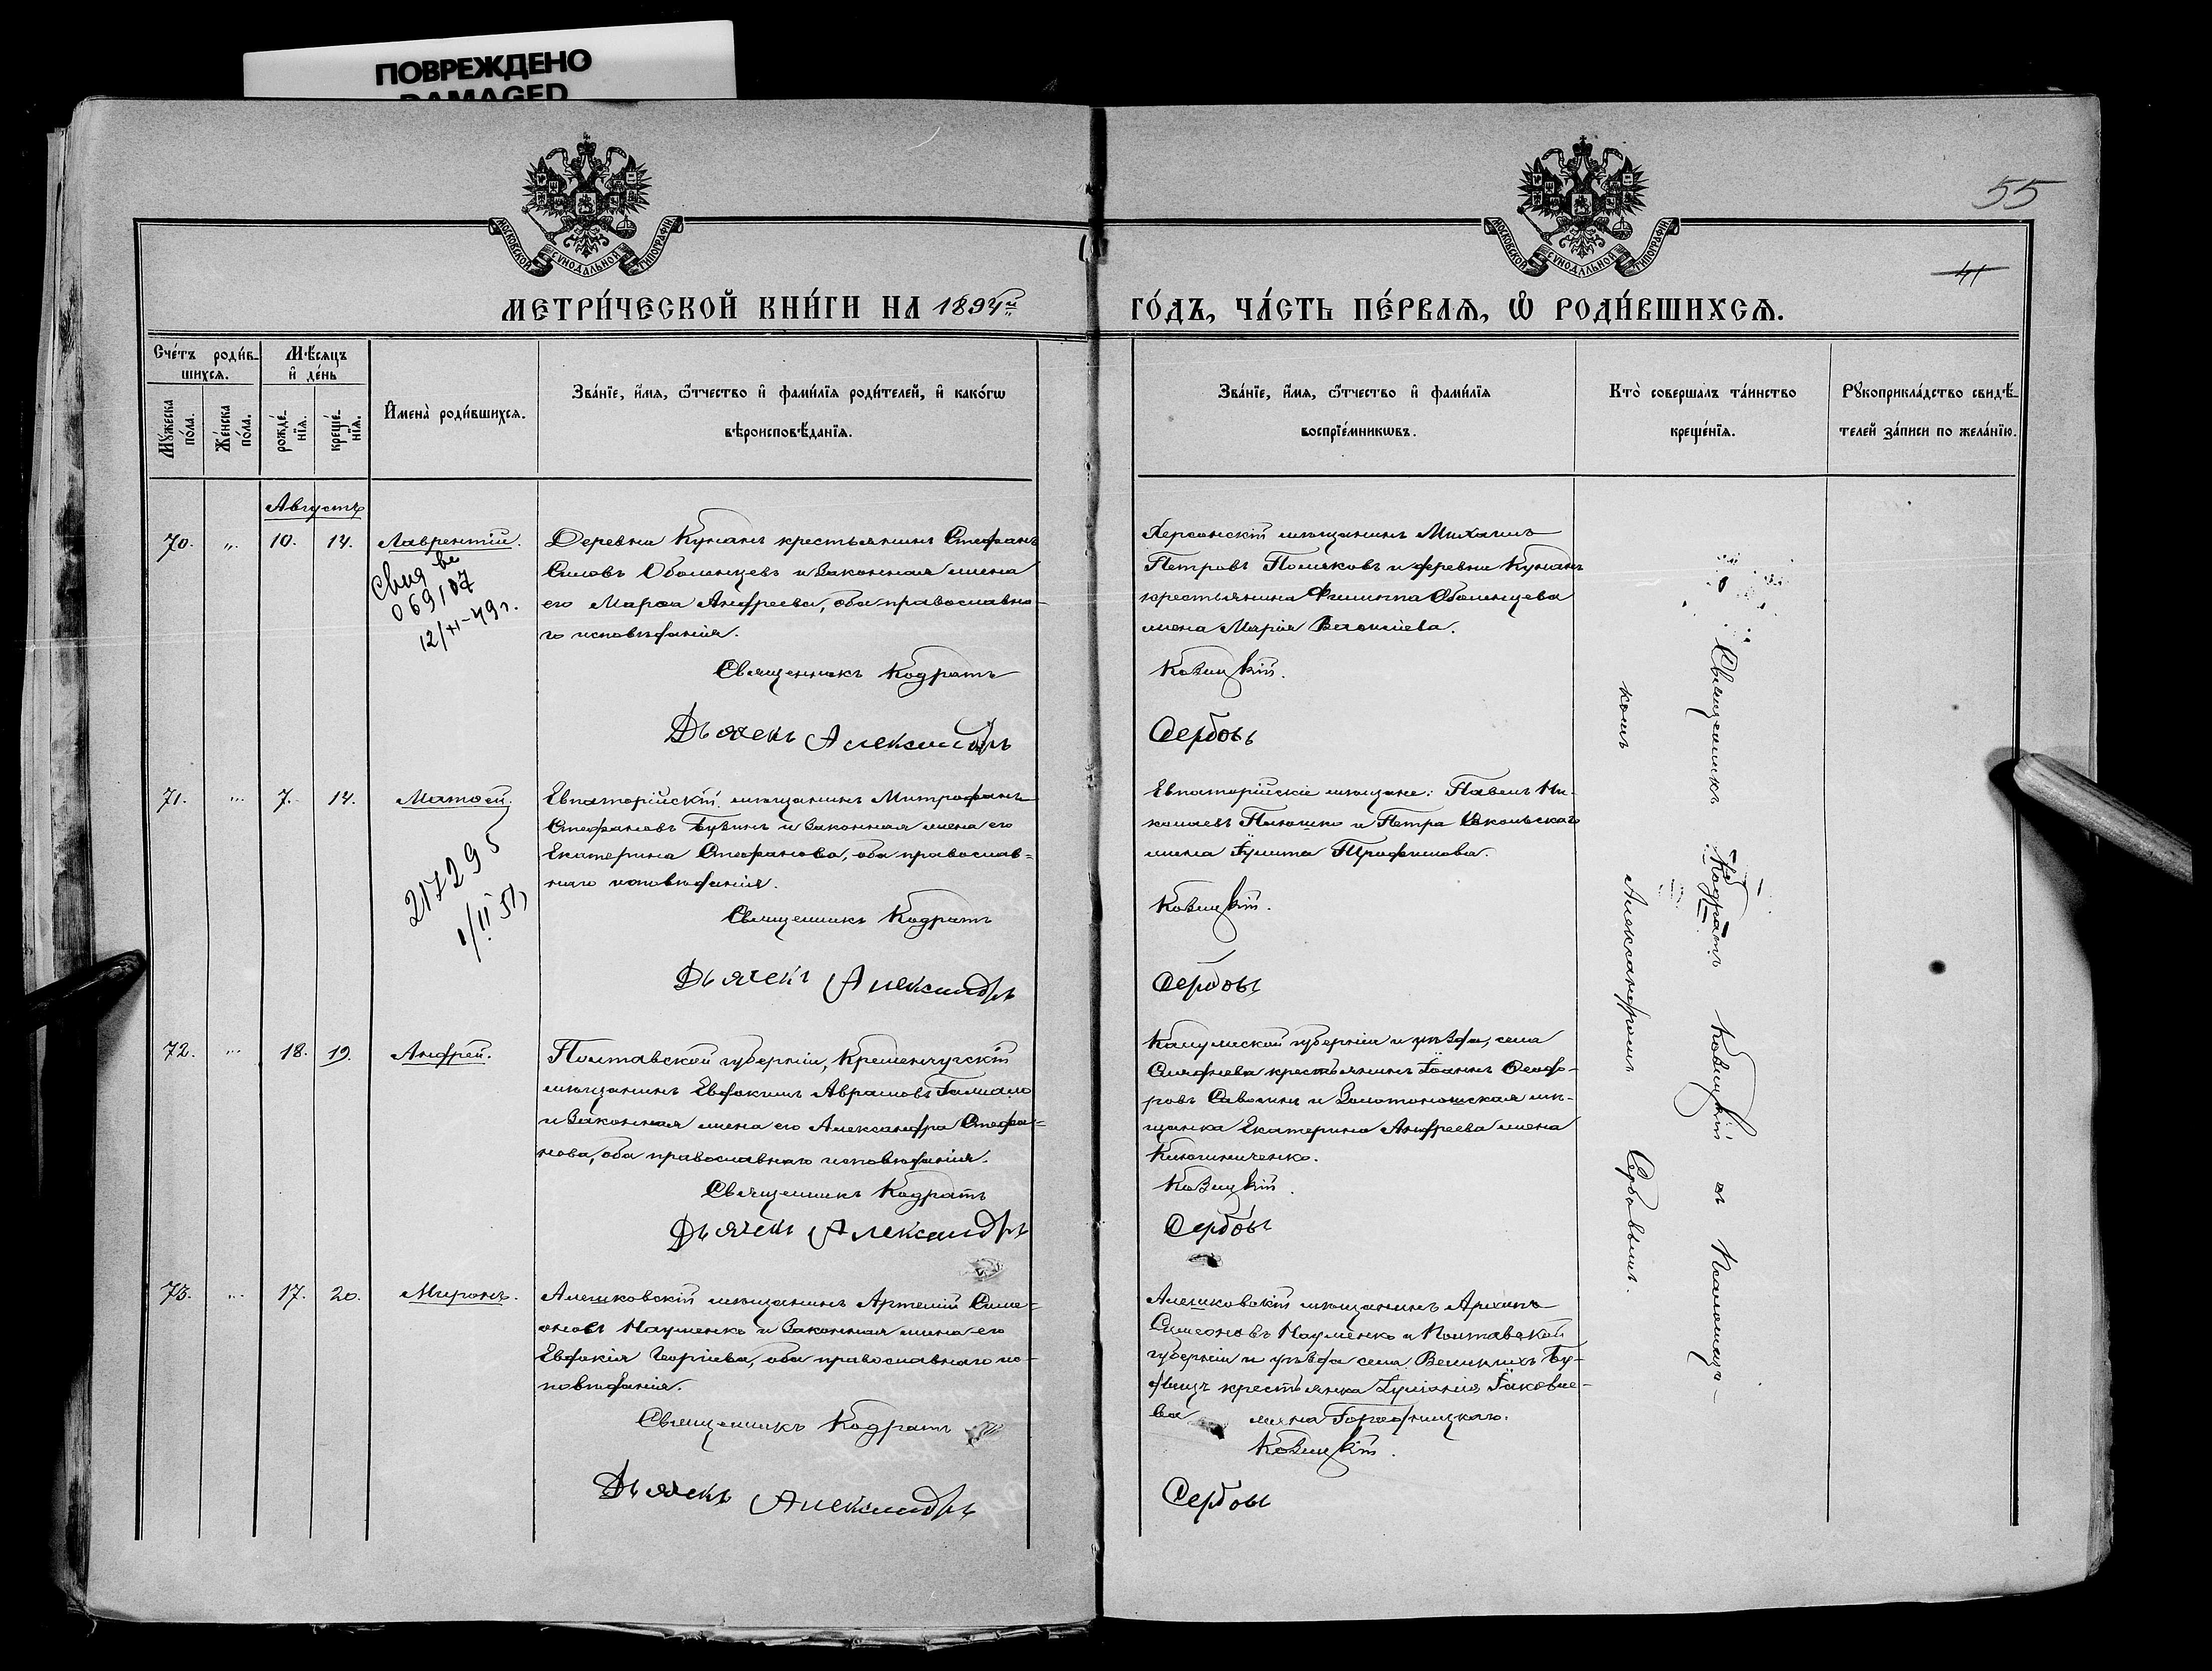 ПОВРЕЖДЕНО
DAMAGED
55
41
МОСКОВСКОЙ СѴНОДАЛЬНОЙ ТИПОГРАФІИ
МОСКОВСКОЙ СѴНОДАЛЬНОЙ ТИПОГРАФІИ
МЕТРИ́ЧЕСКОЙ КНИ́ГИ НА 1894й
ГО́ДЪ, ЧА́СТЬ ПЕ́РВАѦ, Ѡ҆ РОДИ́ВШИХСѦ.
Сче́тъ роди́в-
шихсѧ.
Мѣ́сяцъ
и҆ де́нь
Мꙋ́жеска по́ла.
Же́нска по́ла.
рожде́нїѧ.
креще́нїѧ.
И҆мена̀ роди́вшихсѧ.
Зва́нїе, и҆́мѧ, ѻ҆́тчество и҆ фами́лїѧ роди́телей, и҆ како́гѡ
вѣроисповѣ́данїѧ.
Зва́нїе, и҆́мѧ, ѻ҆́тчество и҆ фами́лїѧ
воспрїе́мникѡвъ.
Кто̀ соверша́лъ та́инство
креще́нїѧ.
Рꙋкоприкла́дство свидѣ́-
телей за́писи по жела́нїю.
Августъ
70. „ 10. 14. Лаврентій.
Свид во
069107
12/XI-49г.
Деревни Кунанъ крестьянинъ Стефанъ
Силовъ Оболенцевъ и законная жена
его Марѳа Андреева, оба православна-
го исповѣданія.
Священникъ Кодратъ
Дьячекъ Александръ
Херсонскій мѣщанинъ Михаилъ
Петровъ Поляковъ и деревни Кунанъ
крестьянина Филиппа Оболенцева
жена Марія Василіева.
Козицкій.
Сербовъ
71. „ 7. 14. Матѳей.
217295
1/II 51
Евпаторійскій мѣщанинъ Митрофанъ
Стефановъ Бузинъ и законная жена его
Екатерина Стефанова, оба православ-
наго исповѣданія.
Священникъ Кодратъ
Дьячекъ Александръ
Евпаторійскіе мѣщане: Павелъ Ни-
колаевъ и Петра Сокольскаго
жена Іулита Трофимова.
Козицкій.
Сербовъ
72. „ 18. 19. Андрей.
Полтавской губерніи, Кременчугскій
мѣщанинъ Евдокимъ Аврамовъ
и законная жена его Александра Стефа-
нова, оба православнаго исповѣданія.
Священникъ Кодратъ
Дьячекъ Александръ
Калужской губерніи и уѣзда, села
крестьянинъ Іоаннъ Ѳеодо-
ровъ Савохинъ и Золотоношская мѣ-
щанка Екатерина Андреева жена
Козицкій.
Сербовъ
73. „ 17. 20. Миронъ.
Алешковскій мѣщанинъ Артемій Симе-
оновъ Науменко и законная жена его
Евдокія Георгіева, оба православнаго ис-
повѣданія.
Священникъ Кодратъ
Дьячекъ Александръ
Алешковскій мѣщанинъ Архипъ
Симеоновъ Науменко и Полтавской
губерніи и уѣзда села Великихъ Бу-
дищъ крестьянка Іуліанія Іаковле-
ва жена
Козицкій.
Сербовъ
Священникъ Кодратъ Козицкій съ Псаломщи-
комъ Александромъ Сербовымъ.